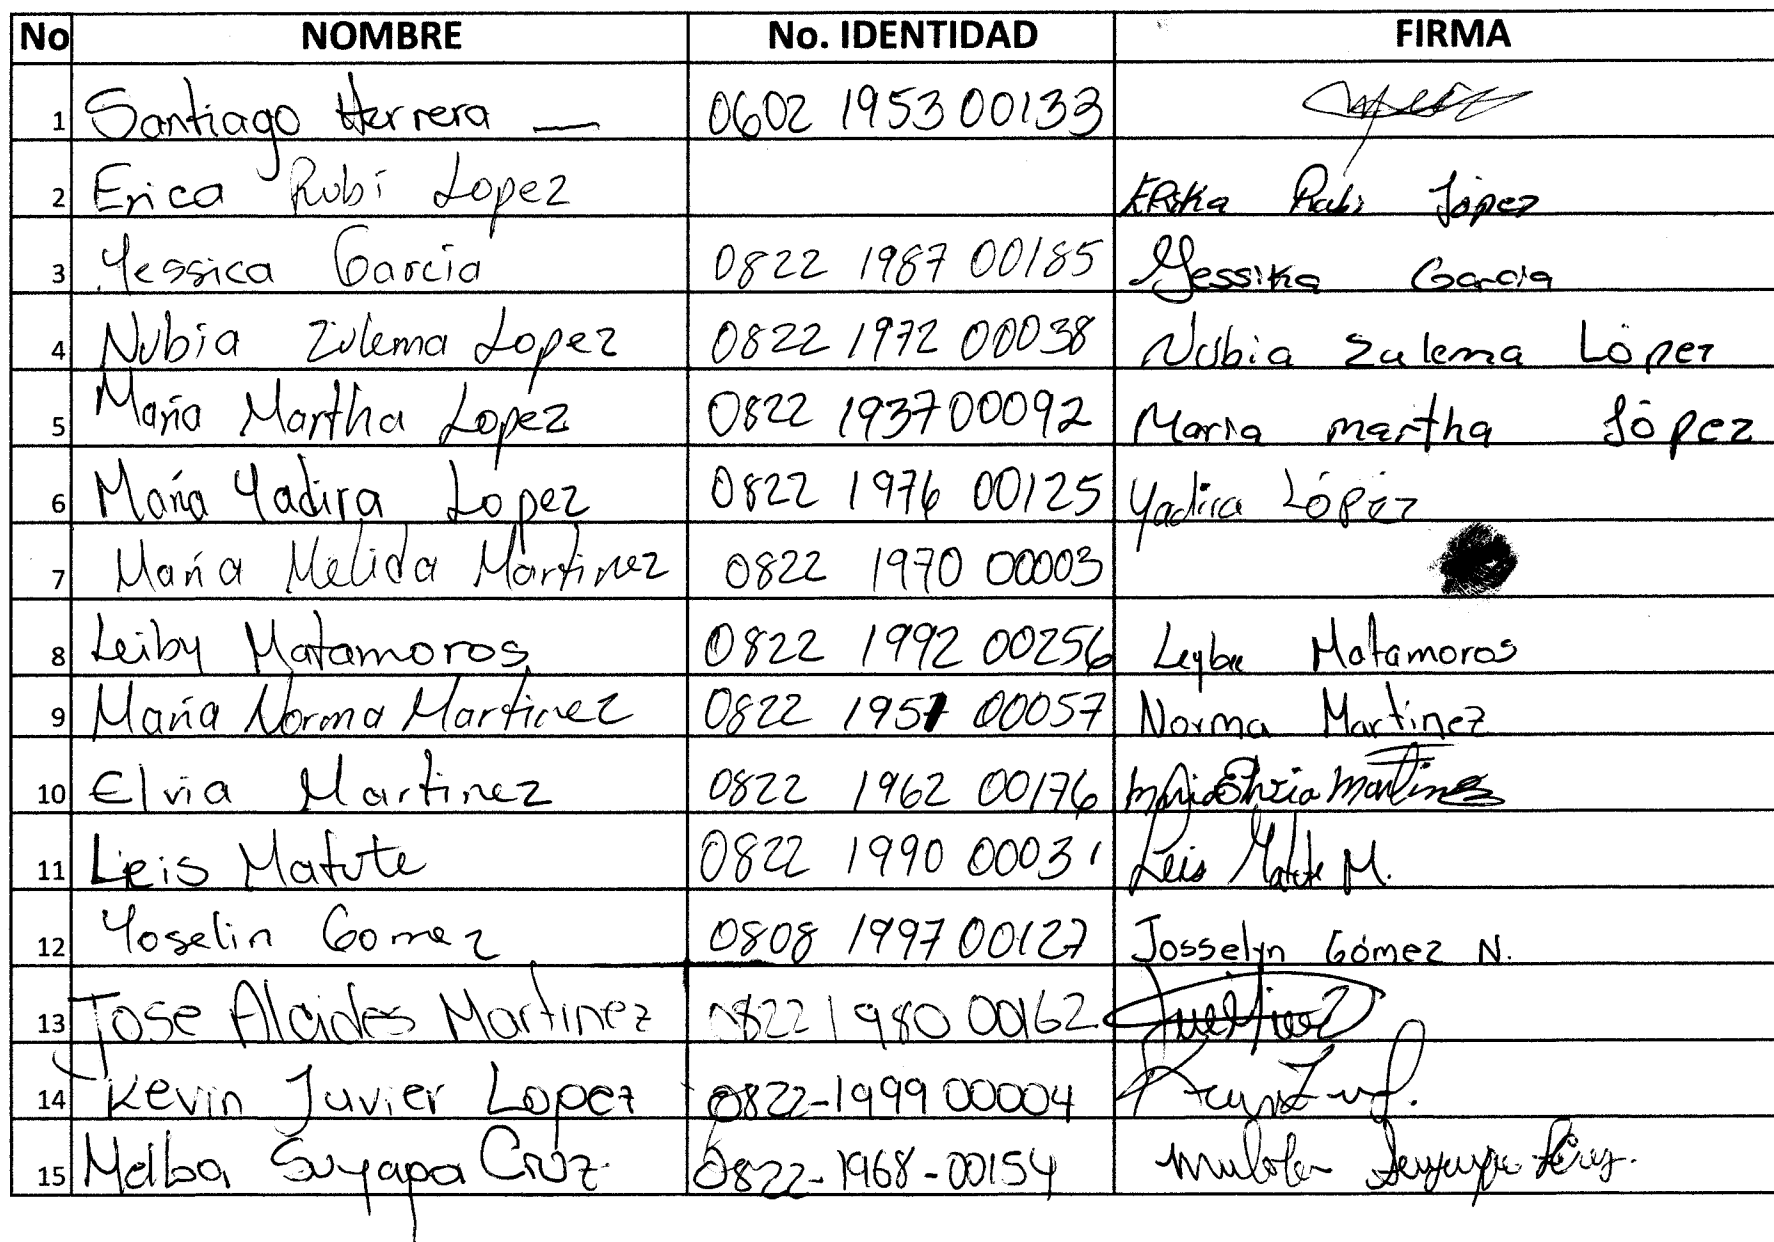 No NOMBRE No. IDENTIDAD FIRMA
1 Santiago Herrera — 0602 1953 00133
2 Erica Rubí Lopez ERika Rubi López
3 Yessica Garcia 0822 1987 00185 Yessika Garcia
4 Nubia Zulema Lopez 0822 1972 00038 Nubia Zulema López
5 Maria Martha Lopez 0822 1937 00092 Maria martha López
6 Maria Yadira Lopez 0822 1976 00125 Yadira López
7 Maria Melida Martinez 0822 1970 00003
8 Leiby Matamoros 0822 1992 00256 Matamoros
9 Maria Norma Martinez 0822 1957 00057 Norma Martinez
10 Elvia Martinez 0822 1962 00176 Maria Elvia Martinez
11 Leis Matute 0822 1990 00031 Leis Matute M.
12 Yoselin Gomez 0808 1997 00127 Josselyn Gómez N.
13 Jose Alcides Martinez 0822 1980 00162
14 Kevin Juvier Lopez 0822-1999 00004
15 Melba Suyapa Cruz 0822-1968-00154 Suyapa Cruz.